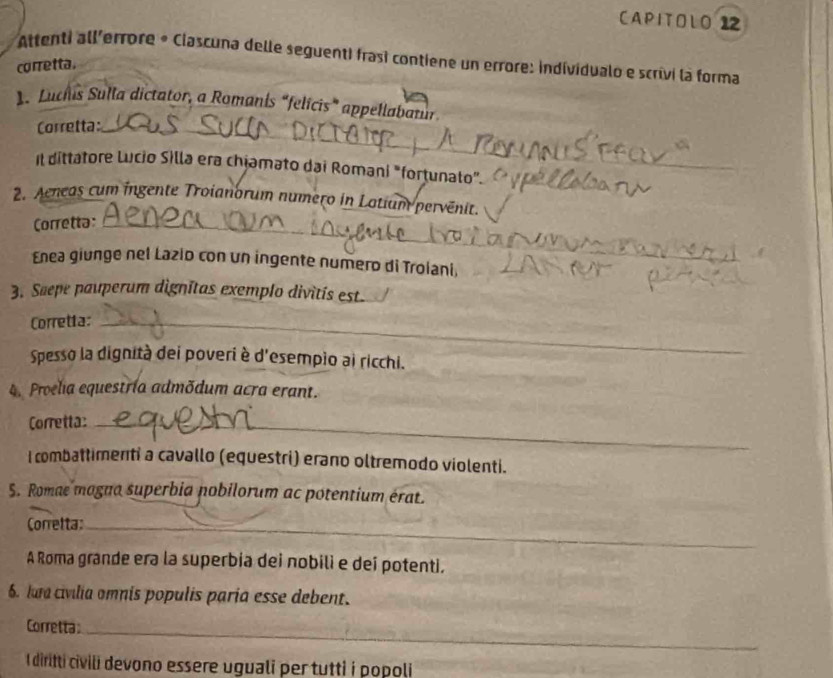 CAPITOLO 12
Attenti all'errore • Ciascuna delle seguenti frasi contiene un errore: individualo e scrivi la forma
corretta.
1. Lucius Sulla dictator, a Romanis "felicis" appellabatur.
Corretta: SULLA DICTATOR, A ROMANIS
Il dittatore Lucio Silla era chiamato dai Romani "fortunato".
2. Aeneas cum ingente Troianorum numero in Latium pervēnit.
Corretta: Aenea cum ingente
Enea giunge nel Lazio con un ingente numero di Troiani.
3. Saepe pauperum dignitas exemplo divitis est.
Corretta:
Spesso la dignità dei poveri è d'esempio ai ricchi.
4. Proelia equestria admŏdum acra erant.
Corretta: equestri
I combattimenti a cavallo (equestri) erano oltremodo violenti.
5. Romae magna superbia nobilorum ac potentium erat.
Corretta:
A Roma grande era la superbia dei nobili e dei potenti.
6. Iura civilia omnis populis paria esse debent.
Corretta:
I diritti civili devono essere uguali per tutti i popoli